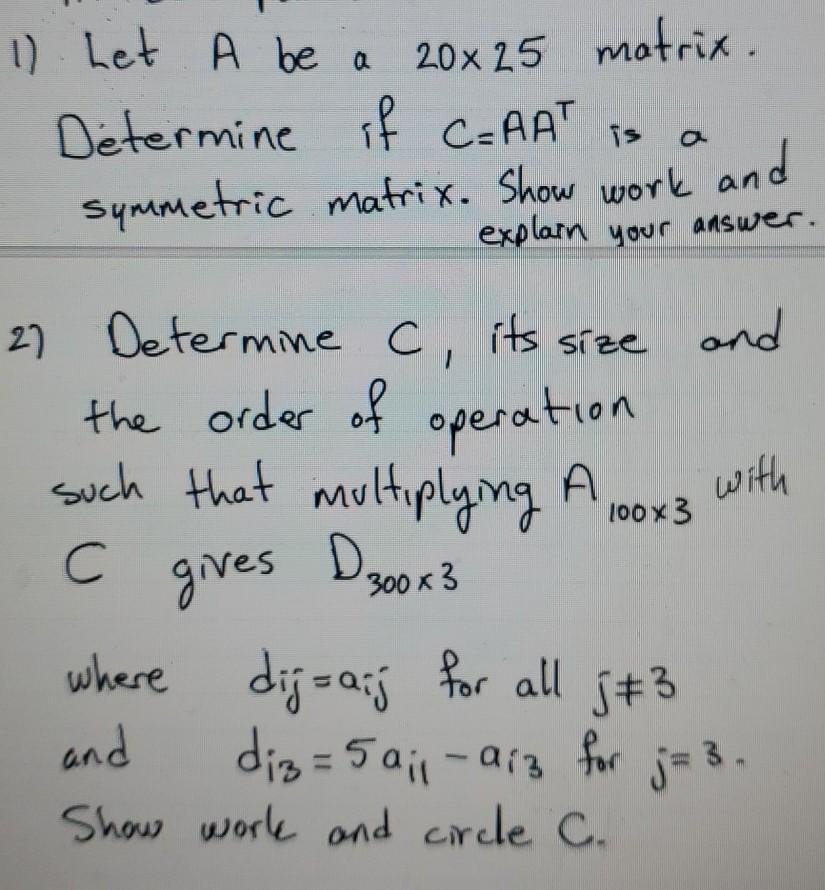 1) Let A be a 20x25 matrix.
Determine if C=AAᵀ is a
symmetric matrix. Show work and
explain your answer.
2) Determine C, its size and
the order of operation
such that multiplying A₁₀₀ₓ₃ with
C gives D₃₀₀ₓ₃
where dij=aij for all j≠3
and di3=5ai1-ai3 for j=3.
Show work and circle C.